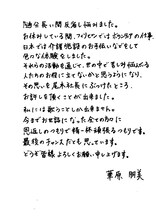 随分長い間反省し悩みました。
お休みしている間、フィリピンではボランティアの仕事
日本では介護施設のお手伝いなどをして
色々な体験をしました。
それらの活動を通じて、世の中で苦しみ悩んでいる
人たちのお役に立てないかと思うようになり、
その思いを尾木社長にぶつけたところ、
お許しを頂くことが出来ました。
私には歌うことしか出来ません。
今までお世話になった全ての皆様に
恩返しのつもりで精一杯頑張るつもりです。
最後のチャンスだとも思っています。
どうぞ皆様よろしくお願い申し上げます。
華原朋美